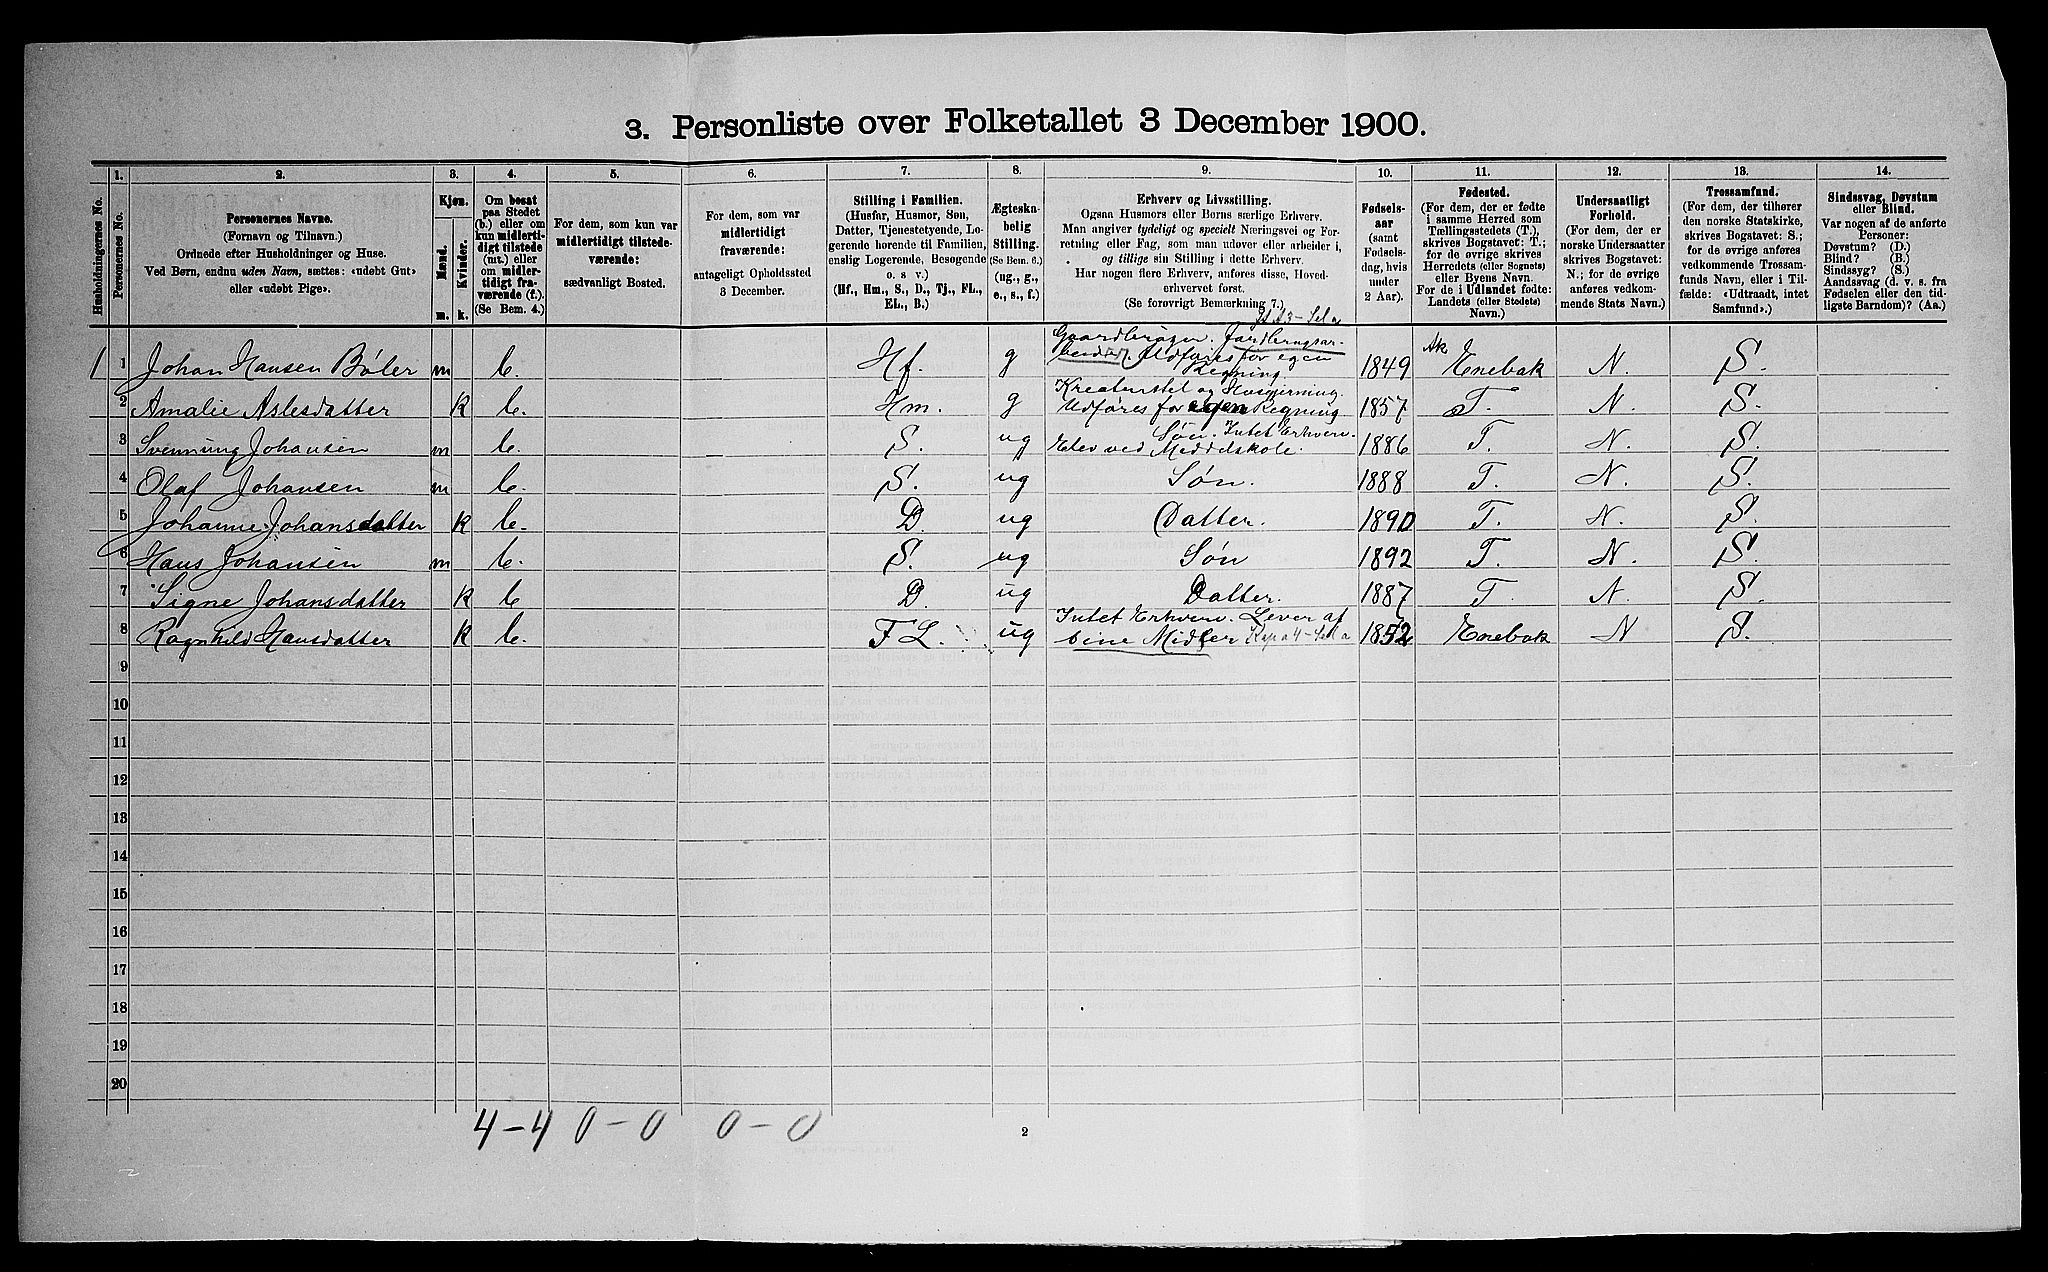 3. Personliste over Folketallet 3 December 1900.
1. 2. 3. 4. 5. 6. 7. 8. 9. 10. 11. 12. 13. 14.
Husholdningernes No.
Personernes No.
Personernes Navne.
(Fornavn og Tilnavn.)
Ordnede efter Husholdninger og Huse.
Ved Børn, endnu uden Navn, sættes: «udøbt Gut»
eller «udøbt Pige».
Kjøn.
Mænd.
Kvinder.
m. k.
Om bosat
paa Stedet
(b.) eller om
kun midlerti-
digt tilstede
(mt.) eller
om midler-
tidigt fra-
værende (f.).
(Se Bem. 4.)
For dem, som kun var
midlertidigt tilstede-
værende:
sædvanligt Bosted.
For dem, som var
midlertidigt
fraværende:
antageligt Opholdssted
3 December.
Stilling i Familien.
(Husfar, Husmor, Søn,
Datter, Tjenestetyende, Lo-
gerende hørende til Familien,
enslig Logerende, Besøgende
o. s v.)
(Hf., Hm., S., D., Tj., FL.,
EL., B.)
Ægteska-
belig
Stilling.
(Se Bem. 6.)
(ug., g.,
e., s., f.)
Erhverv og Livsstilling.
Ogsaa Husmors eller Børns særlige Erhverv.
Man angiver tydeligt og specielt Næringsvei og For-
retning eller Fag, som man udøver eller arbeider i,
og tillige sin Stilling i dette Erhverv.
Har nogen flere Erhverv, anføres disse, Hoved-
erhvervet først.
(Se forøvrigt Bemærkning 7.)
Fødsels-
aar
(samt
Fødsels-
dag, hvis
under
2 Aar).
Fødested.
(For dem, der er fødte
i samme Herred som
Tællingsstedets (T.),
skrives Bogstavet: T.;
for de øvrige skrives
Herredets (eller Sognets)
eller Byens Navn.
For de i Udlandet fødte:
Landets (eller Stedets)
Navn.)
Undersaatligt
Forhold.
(For dem, der er
norske Undersaatter
skrives Bogstavet:
N.; for de øvrige
anføres vedkom-
mende Stats Navn.)
Trossamfund.
(For dem, der tilhører
den norske Statskirke,
skrives Bogstavet: S.;
for de øvrige anføres
vedkommende Trossam-
funds Navn, eller i Til-
fælde: «Udtraadt, intet
Samfund».)
Sindssvag, Døvstum
eller Blind.
Var nogen af de anførte
Personer:
Døvstum? (D.)
Blind? (B.)
Sindssyg? (S.)
Aandssvag (d. v. s. fra
Fødselen eller den tid-
ligste Barndom)? (Aa.)
1 1 Johan Hansen Bøler m b. Hf. g Gaardbruger. Jordbrugsar-
beider. Udføres for egen
Regning 1849 Ak Enebak N. S.
2 Amalie Aslesdatter k b. Hm. g Kreaturstel og Husgjerning.
Udføres for egen Regning 1857 T. N. S.
3 Svennung Johansen m b. S. ug Søn. Intet Erhverv.
Elev ved Middelskole. 1886 T. N. S.
4 Olaf Johansen m b. S. ug Søn. 1888 T. N. S.
5 Johanne Johansdatter k b. D. ug Datter. 1890 T. N. S.
6 Hans Johansen m b. S. ug Søn 1892 T. N. S.
7 Signe Johansdatter k b D. ug Datter. 1887 T N. S.
8 Ragnhild Hansdatter k b. FL. ug Intet Erhverv. Lever af
sine Midler 1852 Enebak N S.
9
10
11
12
13
14
15
16
17
18
19
20
4-4 0-0 0-0
2